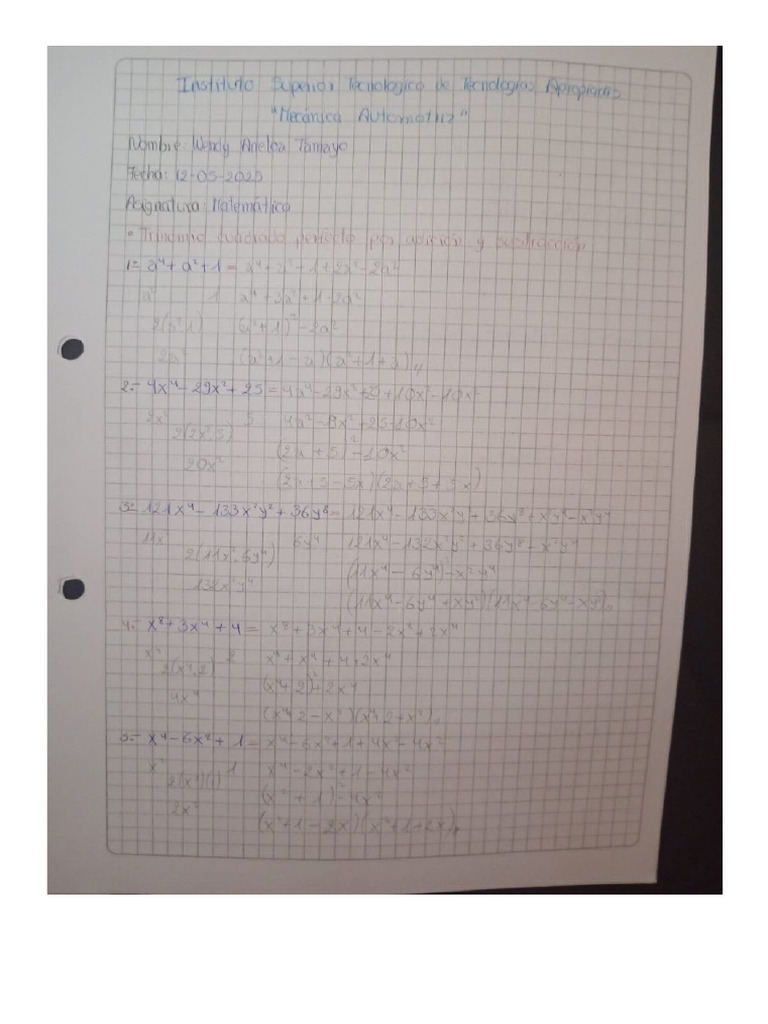 Instituto Superior Tecnologico de Tecnologias Apropiadas
"Mecánica Automotriz"
Nombre: Wendy Tamayo
Fecha: 12-05-2025
Asignatura: Matemática
• Trinomio cuadrado perfecto por adición y sustracción
1= a⁴ + a² + 1 = a⁴ + a² + 1 + 2a² - 2a²
a² 1 a⁴ + 3a² + 1 - 2a²
2(a²·1) (a² + 1)² - 2a²
2a² (a² + 1 - a)(a² + 1 + a)//
2.- 4x⁴ - 29x² + 25 = 4a⁴ - 29x² + 25 + 10x² - 10x²
2x² 5 4a² - 9x² + 25 - 10x²
2(2x²·5) (2a + 5)² - 10x²
20x² (2a + 5 - 5x)(2a + 5 + 5x)
3= 121x⁴ - 133x²y² + 36y⁸ = 121x⁴ - 133x²y² + 36y⁸ + x²y⁴ - x²y⁴
11x² 6y⁴ 121x⁴ - 132x²y² + 36y⁸ - x²y⁴
2(11x²·6y⁴) (11x⁴ - 6y⁴) - x²y⁴
132x²y⁴ (11x⁴ - 6y⁴ + xy²)(11x⁴ - 6y⁴ - xy²)//
4.- x⁸ + 3x⁴ + 4 = x⁸ + 3x⁴ + 4 - 2x⁴ + 2x⁴
x⁴ 2 x⁸ + x⁴ + 4 + 2x⁴
2(x⁴·2) (x⁴ + 2)² + 2x⁴
4x⁴ (x⁴ + 2 - x²)(x⁴ + 2 + x²)//
5.- x⁴ - 6x² + 1 = x⁴ - 6x² + 1 + 4x² - 4x²
x² 1 x⁴ - 2x² + 1 - 4x²
2(x²)(1) (x² + 1)² - 4x²
2x² (x² + 1 - 2x)(x² + 1 + 2x)//